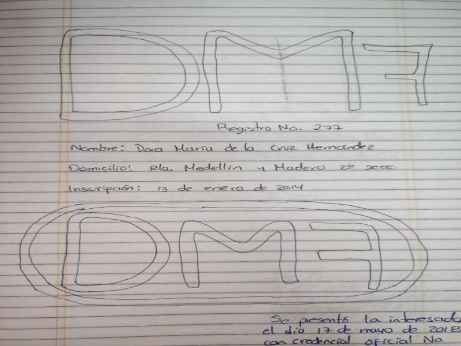 DM7
Registro No. 277
Nombre: Dora María de la Cruz Hernández
Domicilio: Ría. Medellín y Madero 2ª secc.
Inscripción: 13 de enero de 2014
DM7
Se presentó la interesada
el día 17 de mayo de 2018
con credencial oficial No